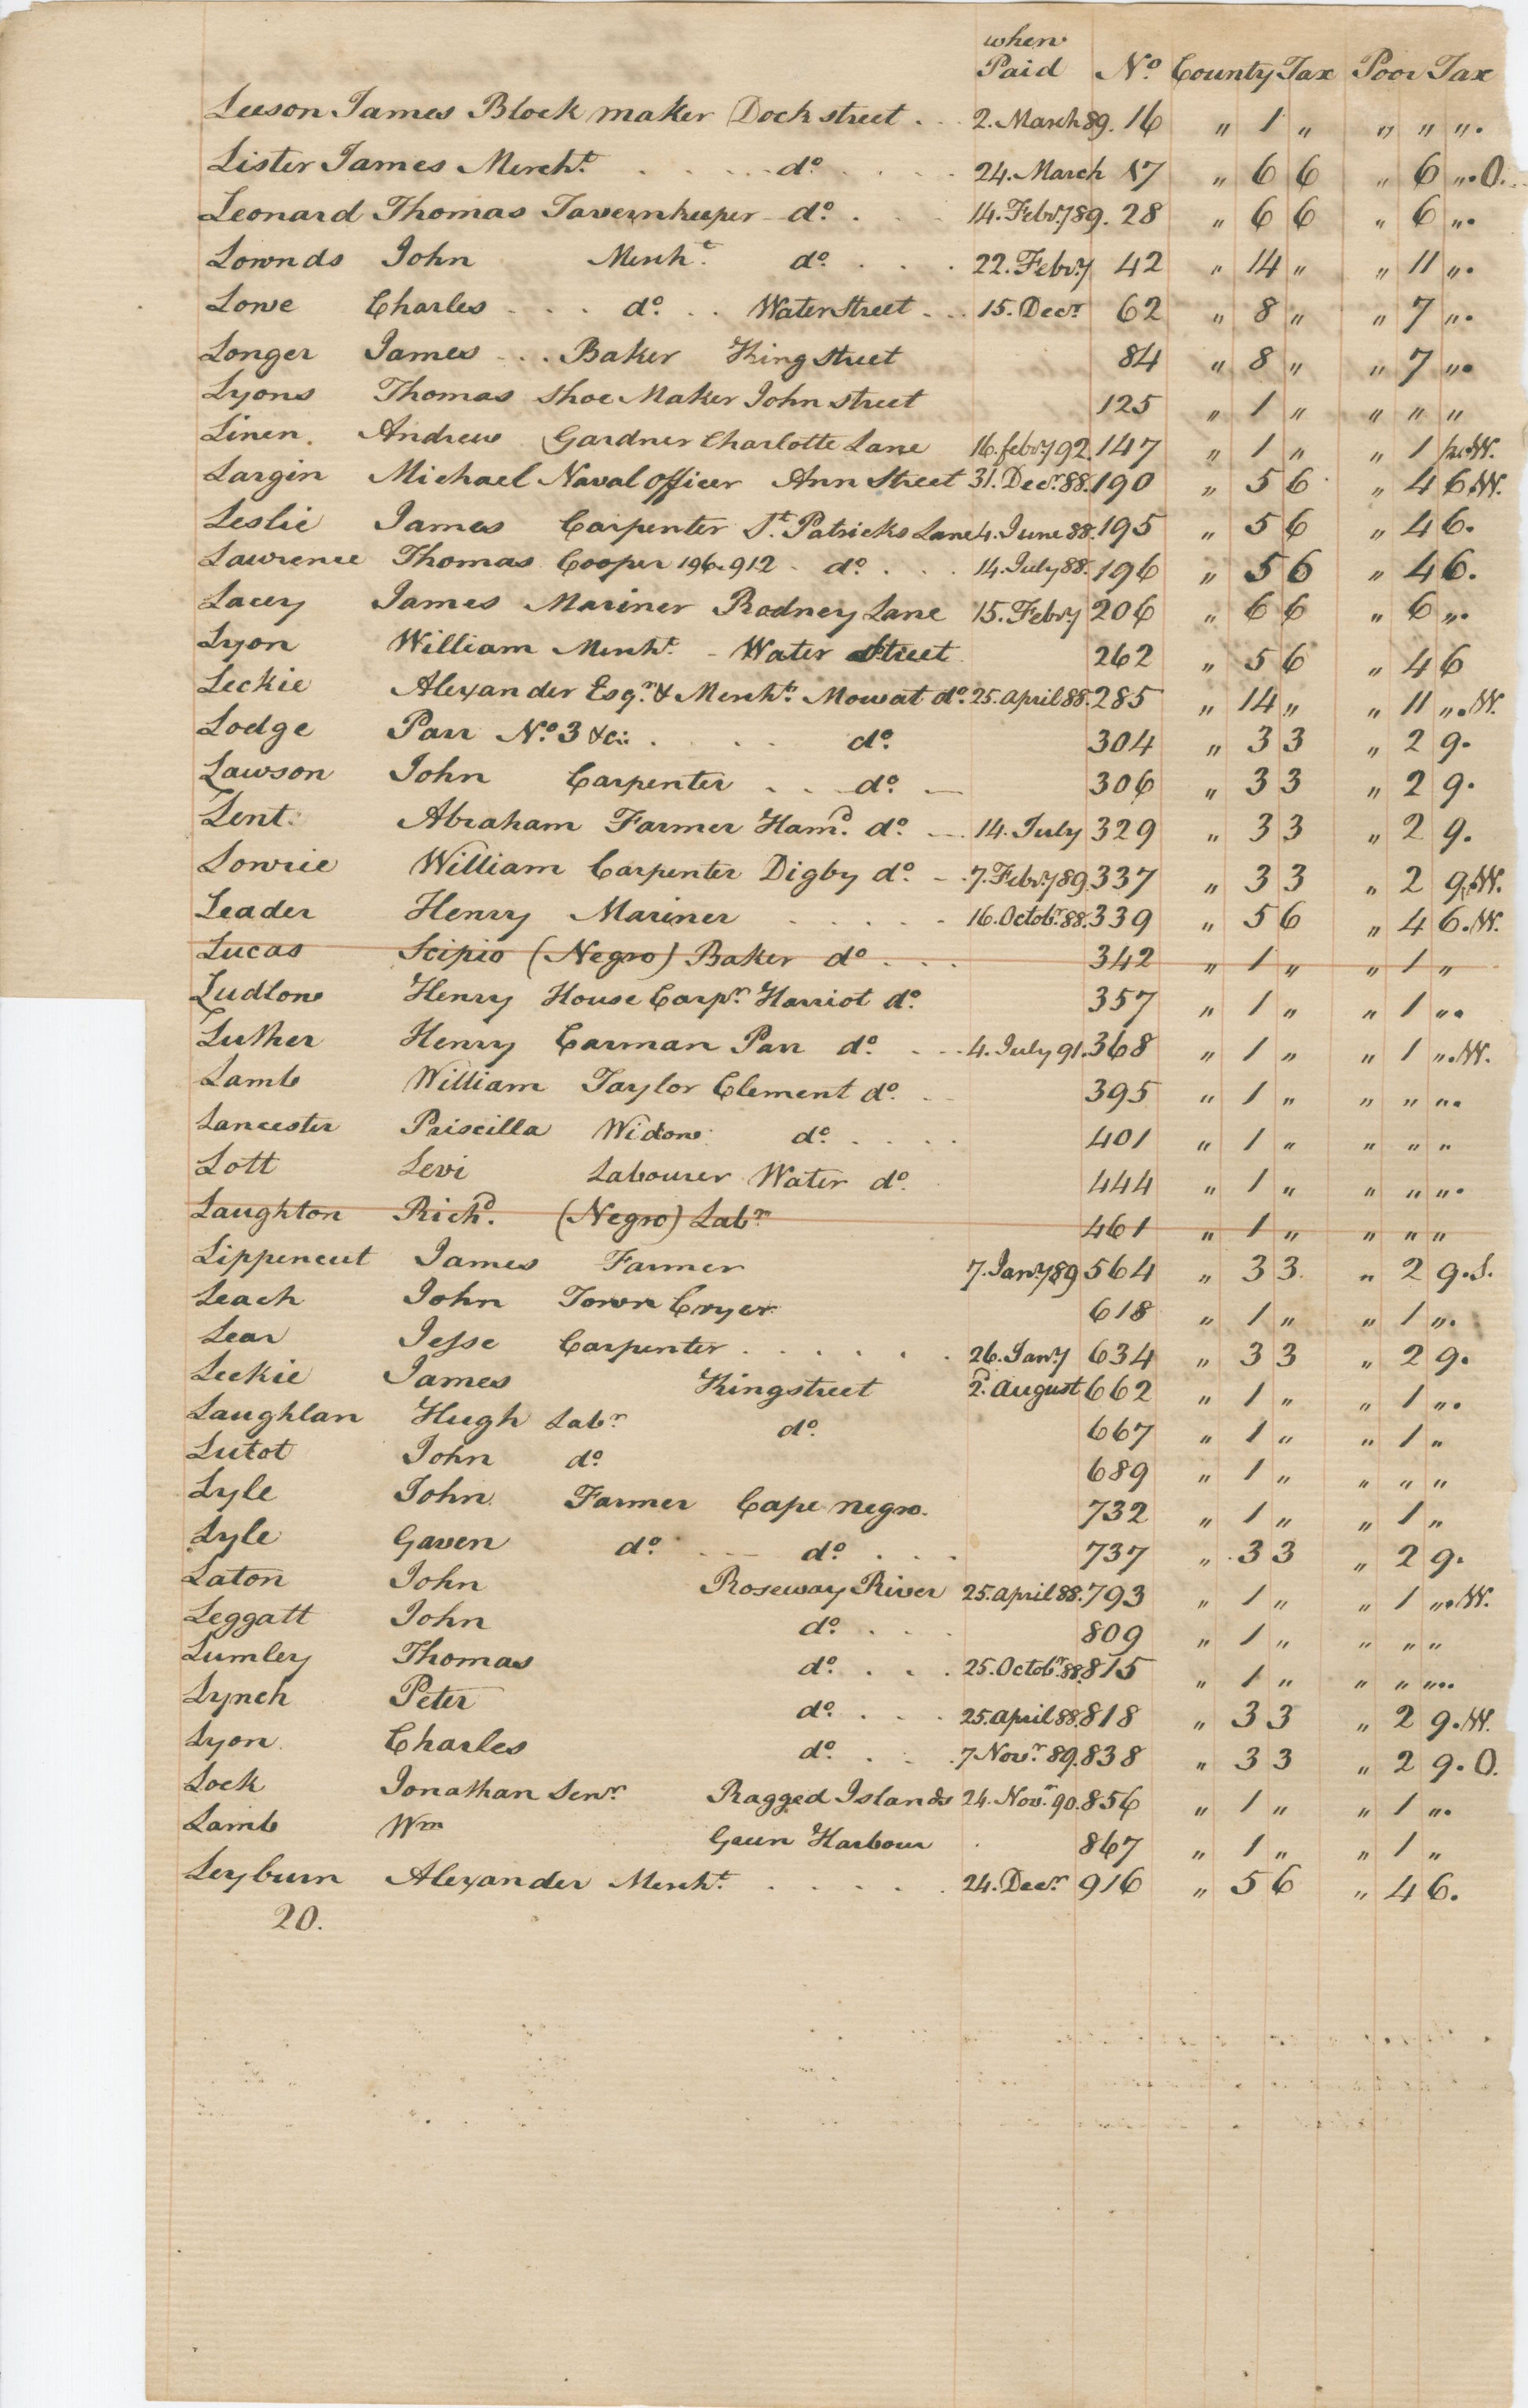 when
Paid No. County Tax Poor Tax
Leeson James Block maker Dock street . . 2. March 89. 16 " 1 " " " ".
Lister James Mercht. . . . . do. . . . . 24. March 17 " 6 6 " 6 ". O.
Leonard Thomas Tavernkeeper do. . . . 14. Febry 89. 28 " 6 6 " 6 ".
Lownds John Mercht. do. . . . 22. Febry 42 " 14 " " 11 ".
Lowe Charles . . . do. . . Water Street . . . 15. Decr 62 " 8 " " 7 ".
Longer James . . . Baker King Street 84 " 8 " " 7 ".
Lyons Thomas Shoe Maker John street 125 " 1 " " " "
Linen. Andrew Gardner Charlotte Lane 16. febry 92. 147 " 1 " " 1 W.
Largin Michael Naval Officer Ann Street 31. Decr. 88. 190 " 5 6 " 4 6. W.
Leslie James Carpenter St. Patricks Lane 4. June 88. 195 " 5 6 " 4 6.
Lawrence Thomas Cooper 196.912 . do. . . . 14. July 88. 196 " 5 6 " 4 6.
Lacey James Mariner Rodney Lane 15. Febry 206 " 6 6 " 6 ".
Lyon William Mercht. - Water Street 262 " 5 6 " 4 6
Leckie Alexander Esqr. & Mercht. Mowat do. 25. April 88. 285 " 14 " " 11 ". W.
Lodge Parr No. 3 &c: . . . . do. 304 " 3 3 " 2 9.
Lawson John Carpenter . . . do. — 306 " 3 3 " 2 9.
Lent. Abraham Farmer Hamd. do. — 14. July 329 " 3 3 " 2 9.
Lowrie William Carpenter Digby do. - . 7. Febry 89. 337 " 3 3 " 2 9. W.
Leader Henry Mariner . . . . . 16. Octobr. 88. 339 " 5 6 " 4 6. W.
Lucas Scipio (Negro) Baker do . . . 342 " 1 " " 1 "
Ludlow Henry House Carpr. Harriot do. 357 " 1 " " 1 ".
Luther Henry Carman Parr do. . . . 4. July 91. 368 " 1 " " 1 ". W.
Lamb William Taylor Clement do. . . 395 " 1 " " " ".
Lancester Priscilla Widow do. . . . . 401 " 1 " " " "
Lott Levi Labourer Water do. 444 " 1 " " " ".
Laughton Richd. (Negro) Labr 461 " 1 " " " "
Lippencut James Farmer 7. Janry 89 564 " 3 3 " 2 9. S.
Leach John Town Cryer 618 " 1 " " 1 ".
Lear Jesse Carpenter . . . . . . 26. Janry 634 " 3 3 " 2 9.
Leckie James King street 2d. August 662 " 1 " " 1 ".
Laughlan Hugh Labr do. 667 " 1 " " 1 "
Lutot John do. 689 " 1 " " " "
Lyle John Farmer Cape negro. 732 " 1 " " 1 "
Lyle Gaven do. - — do. . . . 737 " 3 3 " 2 9.
Laton John Roseway River 25. April 88. 793 " 1 " " 1 ". W.
Leggatt John do. . . . 809 " 1 " " " "
Lumley Thomas do. . . . 25. Octobr. 88. 815 " 1 " " " ".
Lynch Peter do. . . . 25. April 88. 818 " 3 3 " 2 9. W.
Lyon Charles do. . . . 7 Novr. 89. 838 " 3 3 " 2 9. O.
Lock Jonathan Senr. Ragged Islands 24. Novr. 90. 856 " 1 " " 1 ".
Lamb Wm Green Harbour 867 " 1 " " 1 "
Leyburn Alexander Mercht. . . . . . 24. Decr 916 " 5 6 " 4 6.
20.